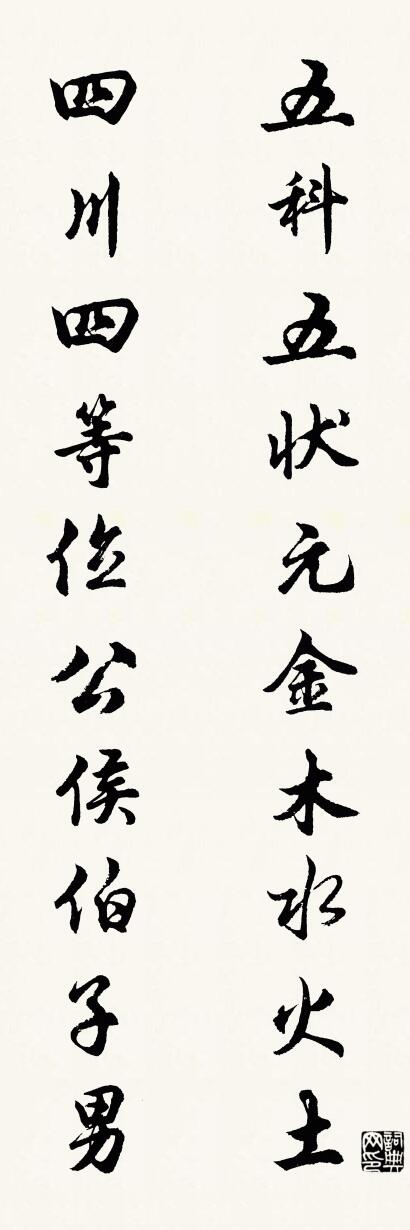 五科五状元金木水火土
四川四等位公侯伯子男
詞典网印